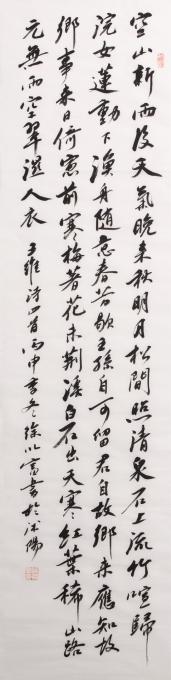 空山新雨後天氣晚來秋明月松間照清泉石上流竹喧歸
浣女蓮動下漁舟隨意春芳歇王孫自可留君自故鄉來應知故
鄉事來日倚窗前寒梅著花未荊溪白石出天寒紅葉稀山路
元無雨空翠濕人衣 王維詩首丙申季冬徐以富書於沭陽